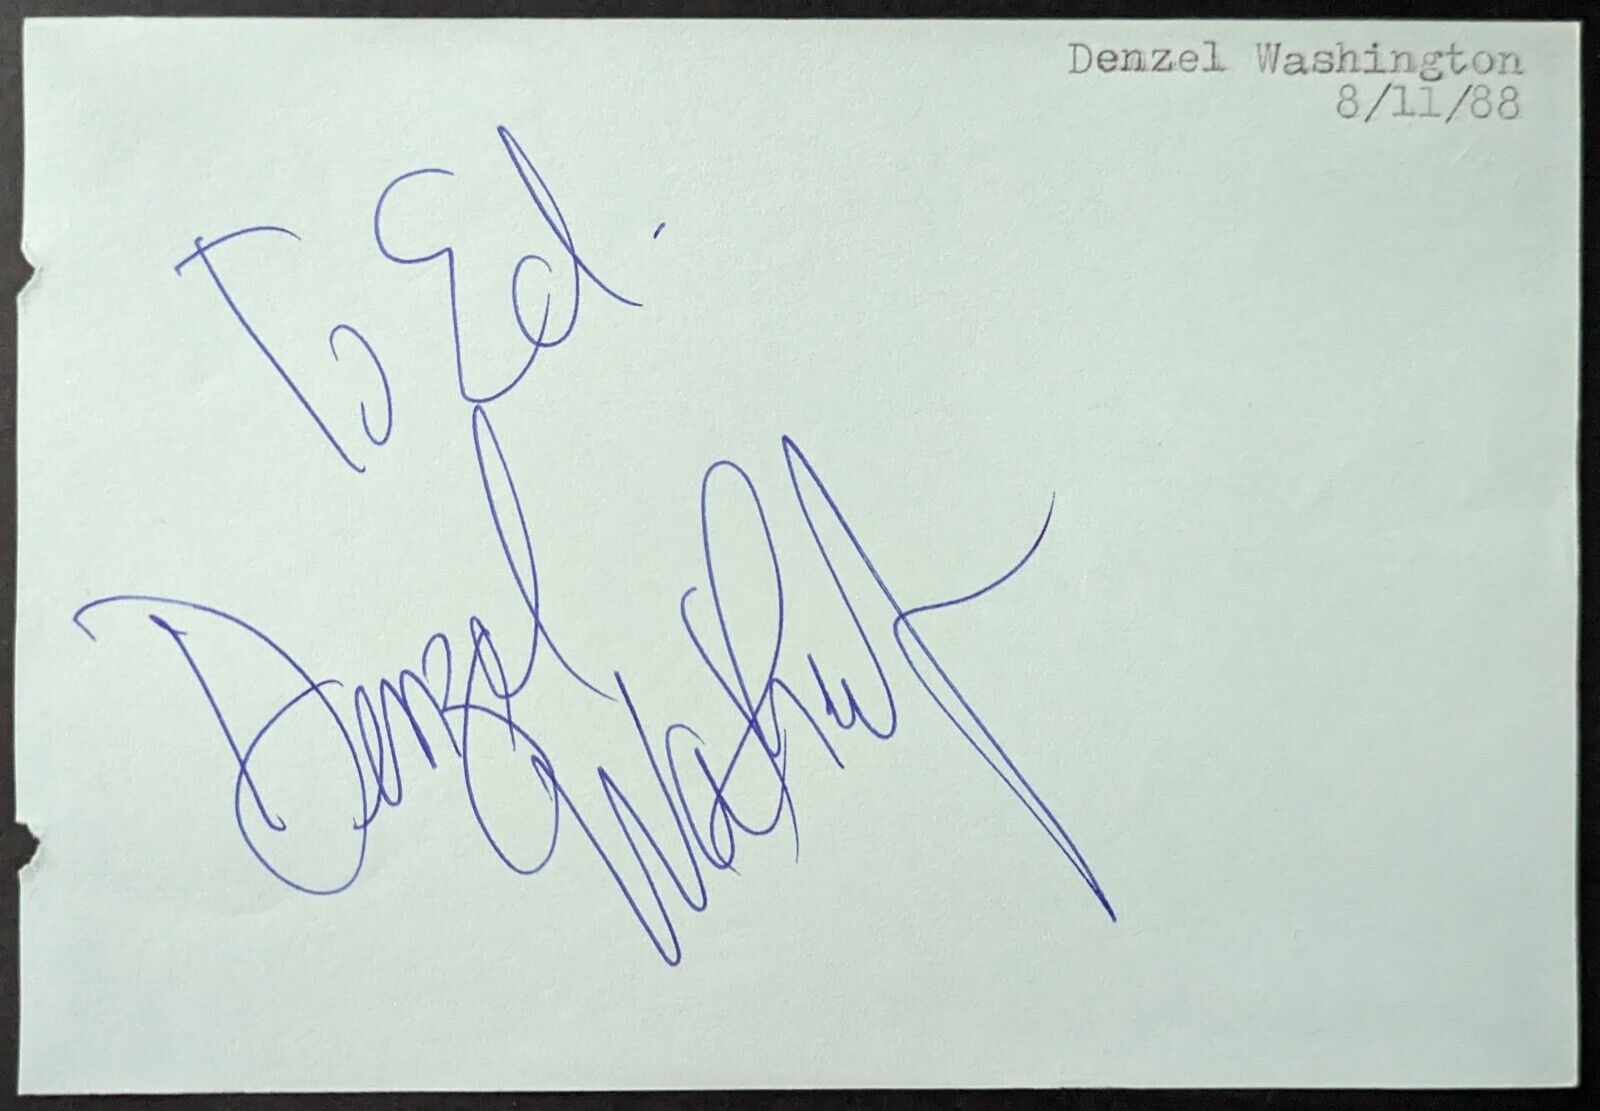 Denzel Washington
8/11/88
To Ed.
Denzel
Washington